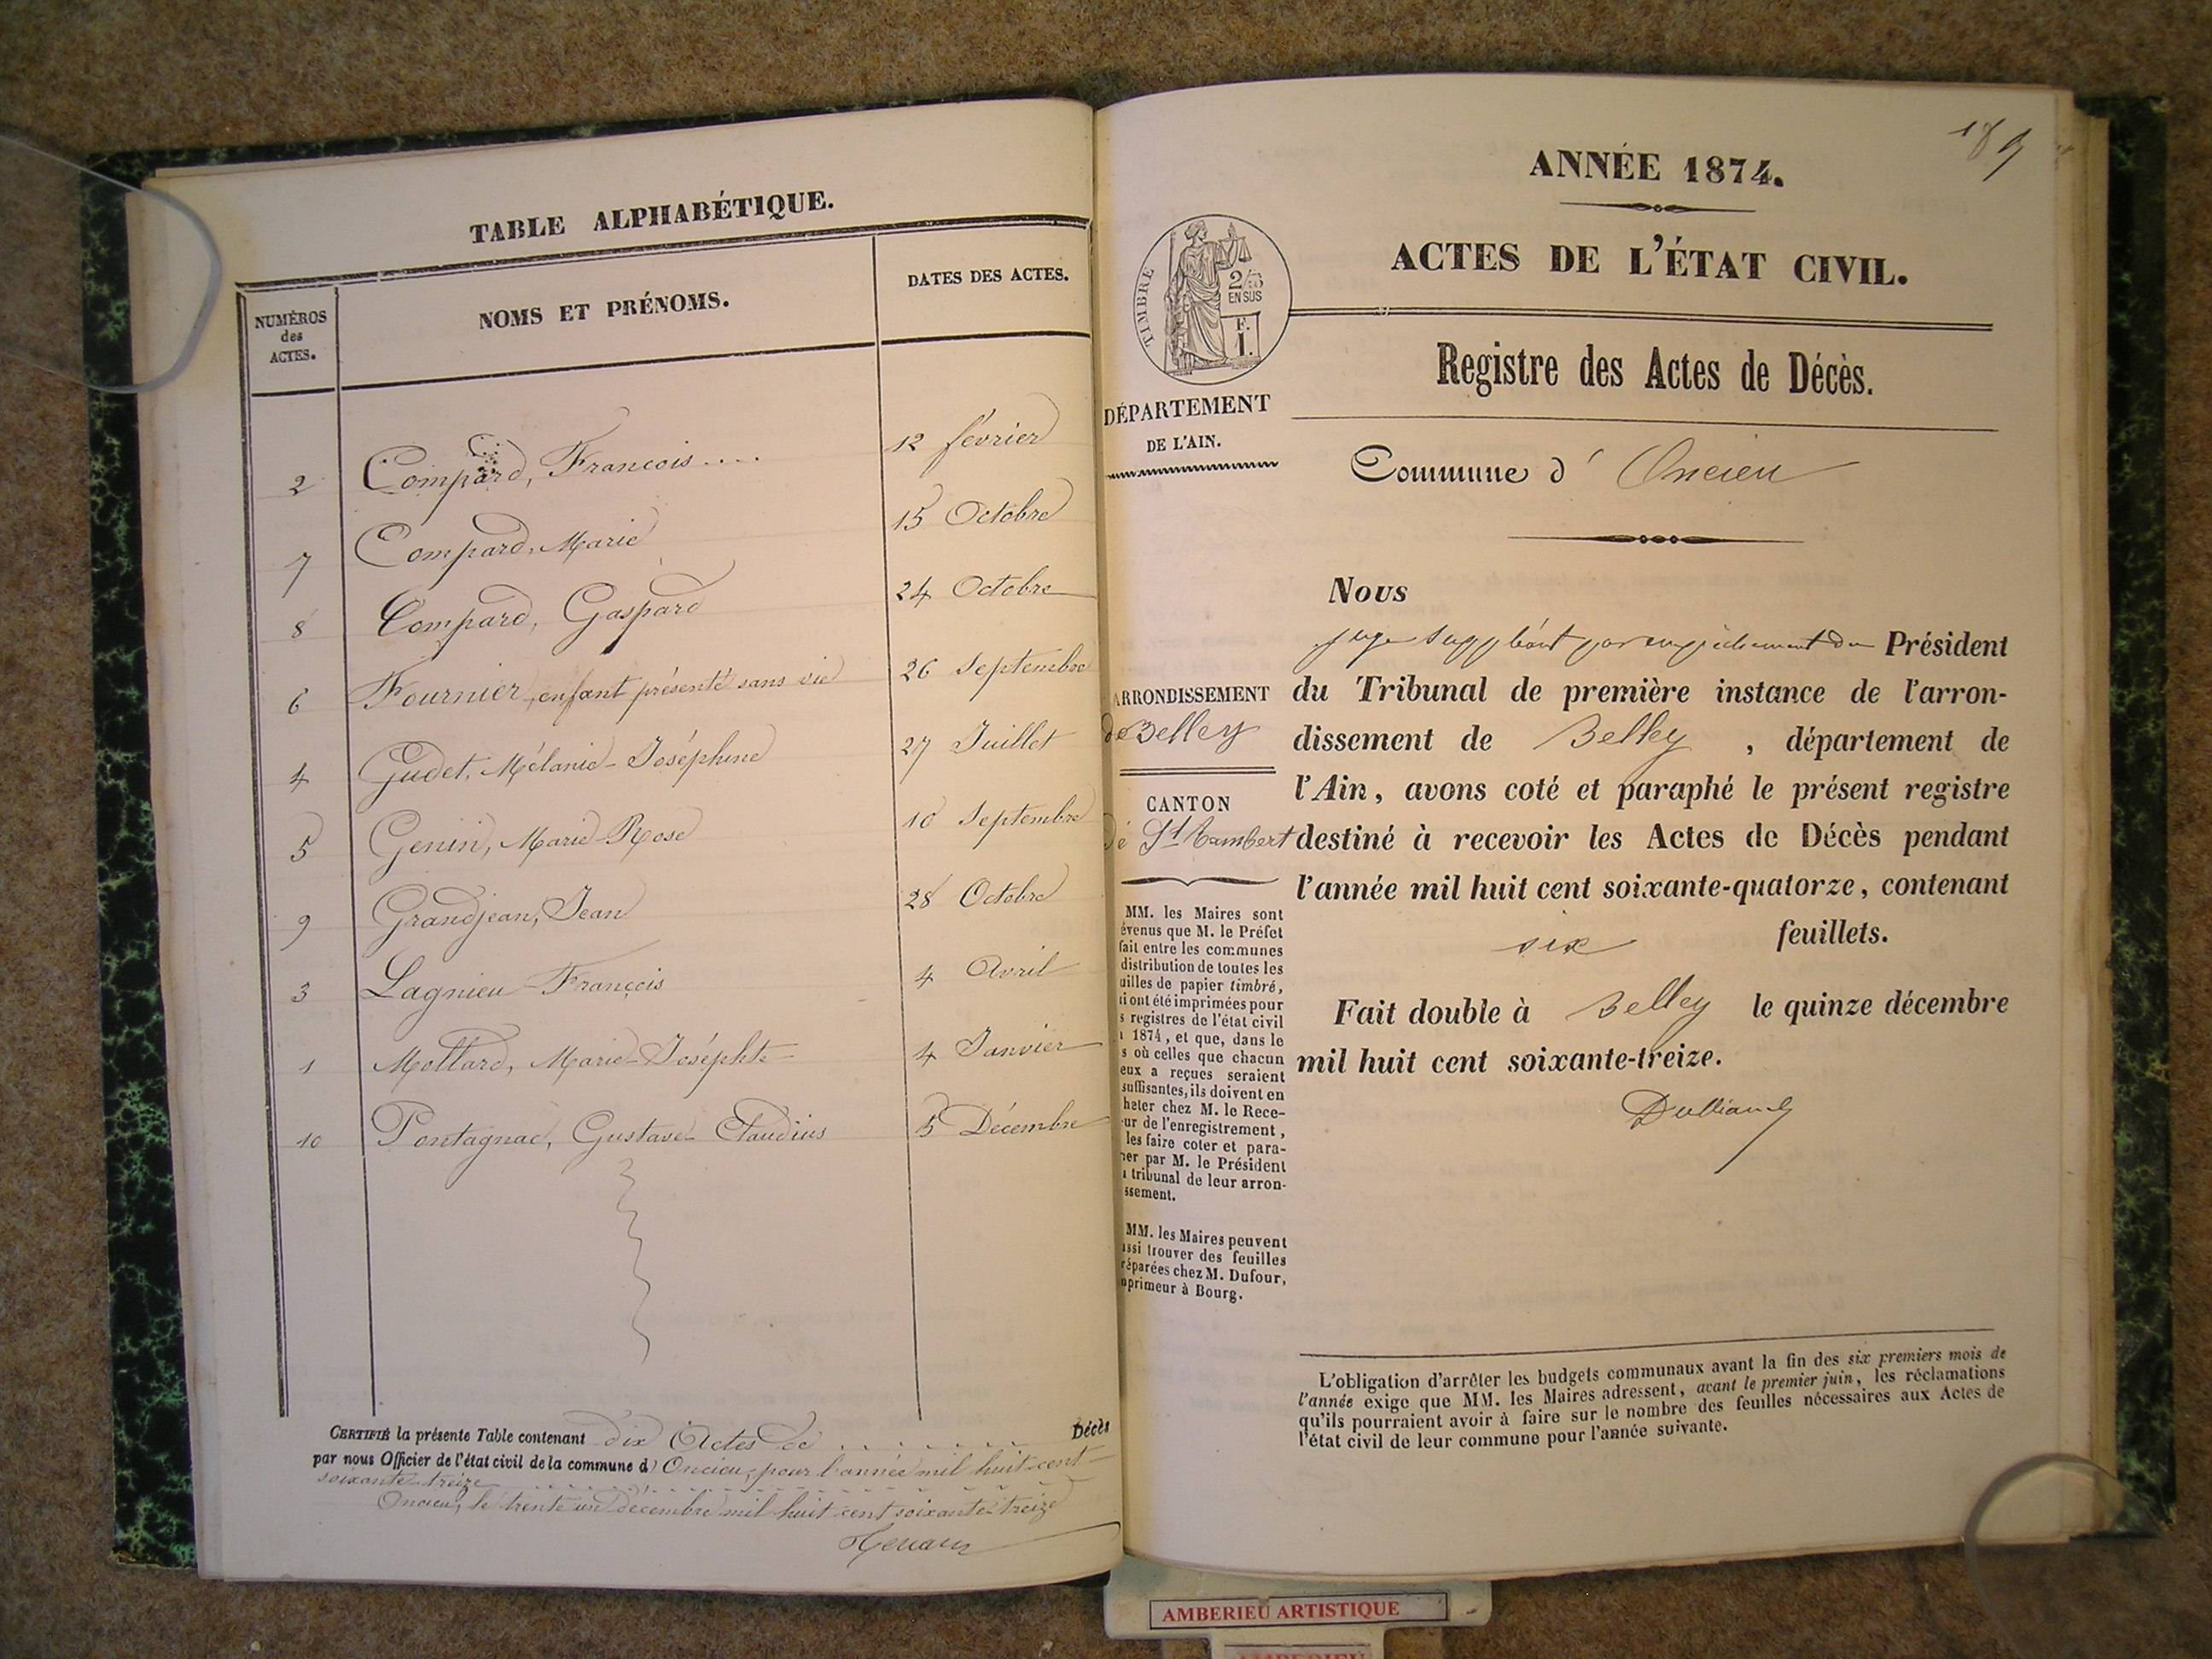 TABLE ALPHABÉTIQUE.
NUMÉROS des ACTES.
NOMS ET PRÉNOMS.
DATES DES ACTES.
2 Compard, François.... 12 février
7 Compard, Marie 15 Octobre
8 Compard, Gaspard 24 Octobre
6 Fournier, enfant présenté sans vie 26 Septembre
4 Gudet, Mélanie-Joséphine 27 Juillet
5 Genin, Marie-Rose 10 Septembre
9 Grandjean, Jean 28 Octobre
3 Lagnieu François 4 Avril
1 Mollard, Marie-Joséphte 4 Janvier
10 Pontagnac, Gustave Claudius 5 Décembre
CERTIFIÉ la présente Table contenant dix Actes de . . . . . . . Décès
par nous Officier de l'état civil de la commune d' Oncieu, pour l'année mil huit cent-
soixante-treize
Oncieu, le trente un décembre mil huit cent soixante-treize
189
ANNÉE 1874.
ACTES DE L'ÉTAT CIVIL.
TIMBRE
2/10
EN SUS
F.
1.
Registre des Actes de Décès.
DÉPARTEMENT
DE L'AIN.
Commune d' Oncieu
ARRONDISSEMENT
de Belley
CANTON
de St Rambert
MM. les Maires sont
évenus que M. le Préfet
fait entre les communes
distribution de toutes les
uilles de papier timbré,
i ont été imprimées pour
s registres de l'état civil
1874, et que, dans le
s où celles que chacun
eux a reçues seraient
suffisantes, ils doivent en
heter chez M. le Rece-
ur de l'enregistrement,
les faire coter et para-
er par M. le Président
tribunal de leur arron-
ssement.
MM. les Maires peuvent
ussi trouver des feuilles
réparées chez M. Dufour,
primeur à Bourg.
Nous
juge suppléant par empêchement du Président
du Tribunal de première instance de l'arron-
dissement de Belley, département de
l'Ain, avons coté et paraphé le présent registre
destiné à recevoir les Actes de Décès pendant
l'année mil huit cent soixante-quatorze, contenant
six feuillets.
Fait double à Belley le quinze décembre
mil huit cent soixante-treize.
L'obligation d'arrêter les budgets communaux avant la fin des six premiers mois de
l'année exige que MM. les Maires adressent, avant le premier juin, les réclamations
qu'ils pourraient avoir à faire sur le nombre des feuilles nécessaires aux Actes de
l'état civil de leur commune pour l'année suivante.
AMBERIEU ARTISTIQUE
AMBERIEU